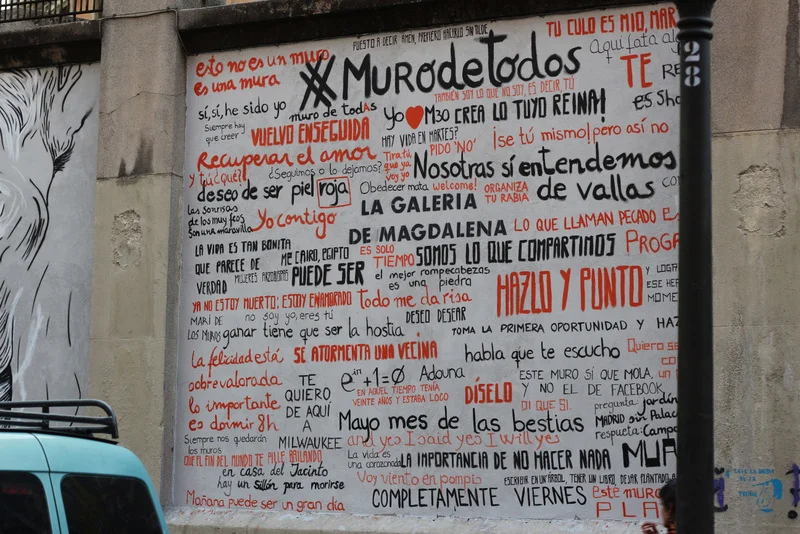 PUESTO A DECIR AMEN, PREFIERO HACERLO SIN TILDE
TU CULO ES MIO, MAR
esto no es un muro
es una mura
#MURODETODOS
Aqui fata al
TE
TAMBIÉN SOY LO QUE NO SOY, ES DECIR, TÚ
sí, sí, he sido yo
muro de todas
Yo ♥ M30 CREA LO TUYO REINA!
es Sho
Siempre hay
que creer
VUELVO ENSEGUIDA
HAY VIDA EN MARTES?
¡se tú mismo! pero así no
PIDO 'NO'
Recuperar el amor
Tira tú
que ya
voy yo
Nosotras sí entendemos
de vallas
y tú ¿qué?
¿Seguimos o lo dejamos?
deseo de ser piel roja
Obedecer mata
welcome!
ORGANIZA
TU RABIA
las sonrisas
de los muy feos
son una maravilla
Yo contigo
LA GALERIA
DE MAGDALENA
LO QUE LLAMAN PECADO E
LA VIDA ES TAN BONITA
QUE PARECE DE
VERDAD
ME CAIRO, EGIPTO
ES SOLO
TIEMPO
SOMOS LO QUE COMPARTIMOS
PROGA
MUJERES
PUEDE SER
el mejor rompecabezas
es una piedra
HAZLO Y PUNTO
Y LOGRA
ESE HER
MOME
YA NO ESTOY MUERTO; ESTOY ENAMORADO
todo me da risa
MARI DE
LOS MUROS
no soy yo, eres tú
DESEO DESEAR
ganar tiene que ser la hostia
TOMA LA PRIMERA OPORTUNIDAD Y HAZ
La felicidad está
sobrevalorada
lo importante
es dormir 8h
SE ATORMENTA UNA VECINA
habla que te escucho
Quiero se
TE
QUIERO
DE AQUÍ
A
MILWAUKEE
Aduna
EN AQUEL TIEMPO TENÍA
VEINTE AÑOS Y ESTABA LOCO
DÍSELO
ESTE MURO SÍ QUE MOLA, UN
Y NO EL DE FACEBOOK,
DI QUE SI.
pregunta: jardín
MADRID sin Palac
respuesta: Campo
Mayo mes de las bestias
Siempre nos quedarán
los muros
and yes I said yes I will yes
QUE EL FIN DEL MUNDO TE PILLE BAILANDO
en casa del Jacinto
hay un sillón para morirse
La vida es
una corazonada
LA IMPORTANCIA DE NO HACER NADA
MUR
Voy viento en pompis
ESCRIBIR EN UN ÁRBOL, TENER UN LIBRO, DEJAR PLANTADO A
Mañana puede ser un gran día
COMPLETAMENTE VIERNES
este muro
PLA
28